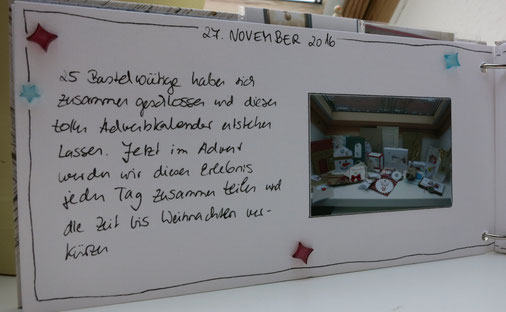 27. NOVEMBER 2016
25 Bastelwütige haben sich
zusammen geschlossen und diesen
tollen Adventskalender entstehen
lassen. Jetzt im Advent
werden wir dieses Erlebnis
jeden Tag zusammen teilen und
die Zeit bis Weihnachten ver-
kürzen